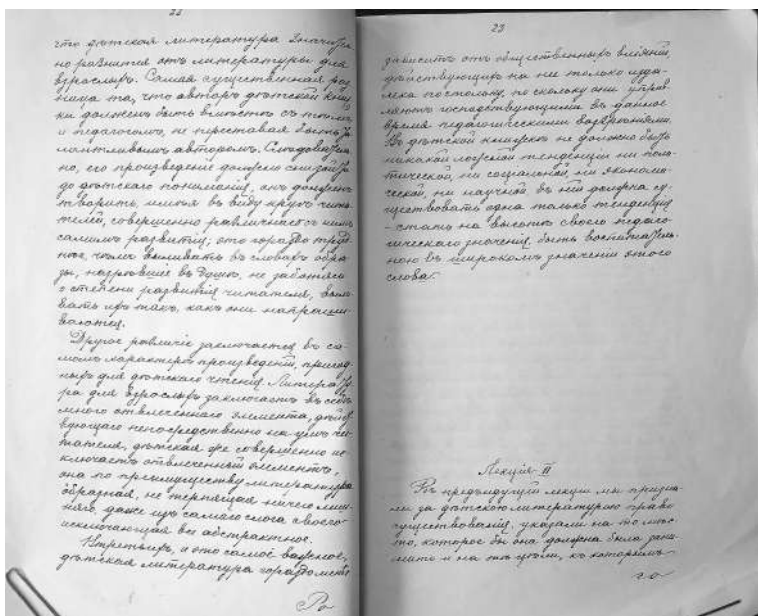 22
что дѣтская литература значитель
но разнится отъ литературы для
взрослыхъ. Самая существенная раз
ница та, что авторъ дѣтской книж
ки долженъ быть вмѣстѣ съ тѣмъ
и педагогомъ, не переставая быть та
лантливымъ авторомъ. Слѣдователь
но, его произведеніе должно снизойти
до дѣтскаго пониманія, онъ долженъ
творить, имѣя въ виду кругъ чита
телей, совершенно различнаго съ нимъ
самимъ развитія, это гораздо труд
нѣе, чѣмъ выливать въ словахъ обра
зы, назрѣвшіе въ душѣ, не заботясь
о степени развитія читателя, выли
вать ихъ такъ, какъ они напраши
ваются.
Другое различіе заключается въ са
момъ характерѣ произведеній, пригод
ныхъ для дѣтскаго чтенія. Литерату
ра для взрослыхъ заключаетъ въ себѣ
много отвлеченнаго элемента, дѣйст
вующаго непосредственно на умъ чи
тателя, дѣтская же совершенно ис
ключаетъ отвлеченный элементъ,
она по преимуществу литература
образная, не терпящая ничего лиш
няго, даже изъ самаго слога своего
исключающая все абстрактное.
Въ третьихъ, и это самое важное,
дѣтская литература гораздо менѣе
23
зависитъ отъ общественныхъ вліяній,
дѣйствующихъ на нее только изда-
лека постольку, по скольку они управ-
ляютъ господствующими въ данное
время педагогическими воззрѣніями.
Въ дѣтской книжкѣ не должно быть
никакой тенденціи ни поли-
тической, ни соціальной, ни экономи-
ческой, ни научной, въ ней должна су-
ществовать одна только тенденція
- стать на высотѣ своего педаго-
гическаго значенія, быть воспитатель-
ною въ широкомъ значеніи этого
слова.
Лекція II
Въ предыдущей лекціи мы призна-
ли за дѣтскою литературою право
существованія, указали на то мѣс-
то, которое бы она должна была зани-
мать и на тѣ цѣли, къ которымъ